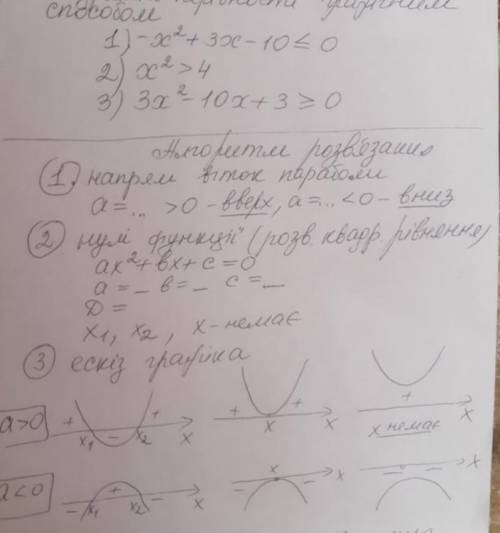 способом
1) -x² + 3x - 10 ≤ 0
2) x² > 4
3) 3x² - 10x + 3 ≥ 0
Алгоритм розв'язання
1. напрям віток параболи
a = ... > 0 - вверх, a = ... < 0 - вниз
2 нулі функції (розв. квадр. рівняння)
ax² + bx + c = 0
a = _ b = _ c = _
D =
x₁, x₂, x - немає
3 ескіз графіка
a>0 + x₁ - x₂ + x + x + x + x немає x
a<0 - x₁ + x₂ - x - x - x - - x